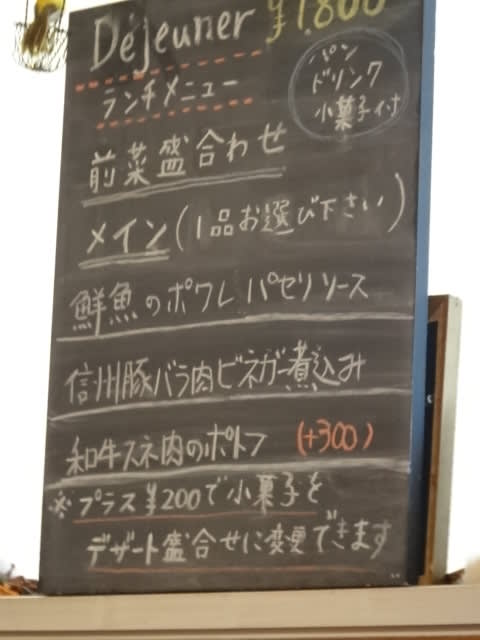 Déjeuner ¥1,800
ランチメニュー
パン
ドリンク
小菓子付
前菜盛合わせ
メイン(1品お選び下さい)
鮮魚のポワレ パセリソース
信州豚バラ肉ビネガー煮込み
和牛スネ肉のポトフ (+300)
※プラス¥200で小菓子を
デザート盛合せに変更できます